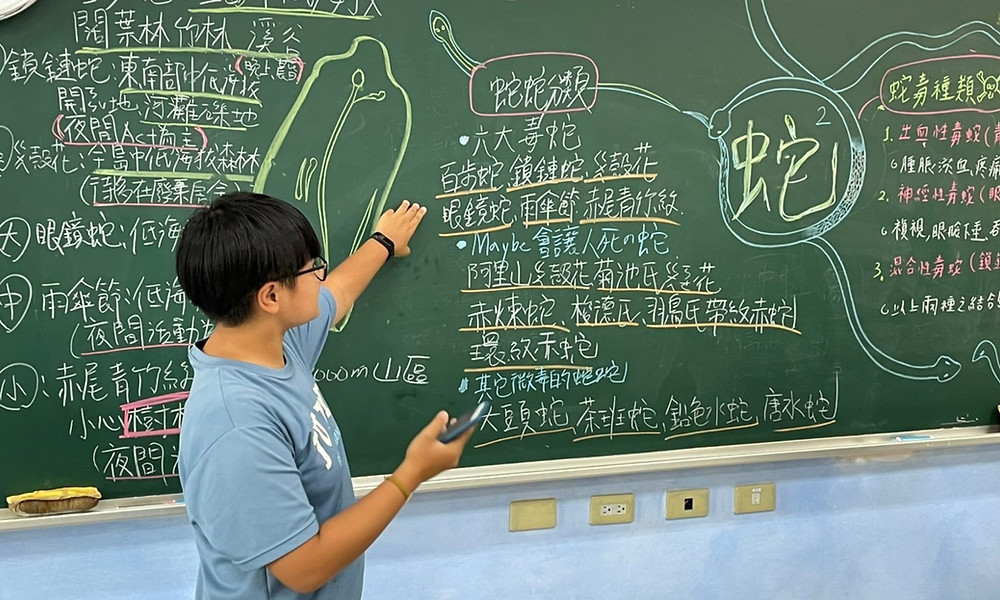 闊葉林 竹林 溪谷
鎖鍊蛇:東南部中低海拔
開闊地、河灘礫地
(夜間
龜殼花:全島中低海拔森林
大 眼鏡蛇:低海
中 雨傘節:低海
(夜間活動
小:赤尾青竹絲
000m山區
小心樹林
(夜間活
蛇蛇分類
•六大毒蛇
百步蛇、鎖鍊蛇、龜殼花
眼鏡蛇、雨傘節、赤尾青竹絲
•Maybe會讓人死の蛇
阿里山龜殼花 菊池氏龜殼花
赤煉蛇、梭德氏、羽鳥氏帶紋赤蛇
環紋赤蛇
其它微毒的蛇蛇
大頭蛇、茶斑蛇、鉛色水蛇、唐水蛇
蛇 2
蛇毒種類
1. 出血性毒蛇(
腫脹、淤血、疼痛
2. 神經性毒蛇(眼
複視,眼瞼下垂、
3. 混合性毒蛇(鎖
以上兩種之結合